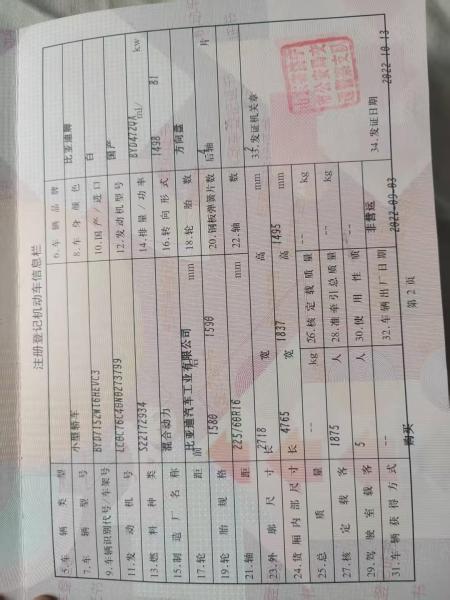 注册登记机动车信息栏
5.车辆类型 小型轿车 6.车辆品牌 比亚迪牌
7.车辆型号 BYD7152WT6HEVC3 8.车身颜色 白
9.车辆识别代号/车架号 LC0C76C48N0273799 10.国产/进口 国产
11.发动机号 S22172934 12.发动机型号 BYD472QA
13.燃料种类 混合动力 14.排量/功率 1498 ml/ 81 kw
15.制造厂名称 比亚迪汽车工业有限公司 16.转向形式 方向盘
17.轮距 前 1580 后 1590 18.轮胎数 4
19.轮胎规格 225/60R16 20.钢板弹簧片数 后轴 片
21.轴距 2718 mm 22.轴数 2
23.外廓尺寸 长 4765 宽 1837 高 1495 mm 33.发证机关章
24.货厢内部尺寸 长 宽 高 mm
25.总质量 1875 kg 26.核定载质量 -- kg
27.核定载客 5 人 28.准牵引总质量 -- kg
29.驾驶室载客 -- 人 30.使用性质 非营运
31.车辆获得方式 购买 32.车辆出厂日期 2022-09-03 34.发证日期 2022-10-13
第 2 页